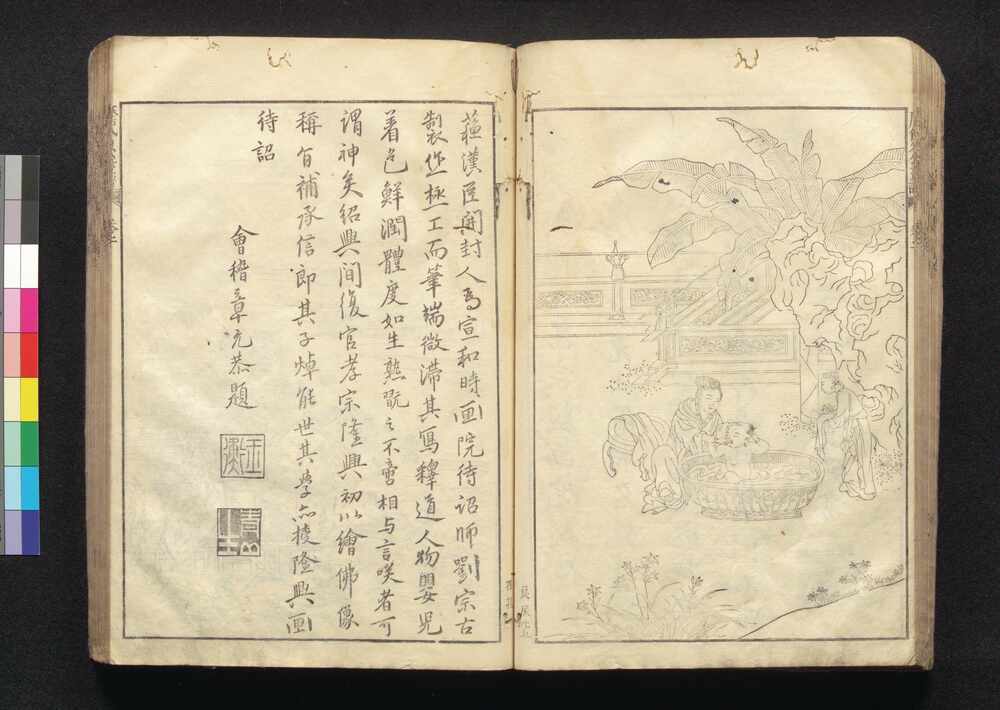 蘓漢臣開封人為宣和時画院待詔師劉宗古
製作極工而筆端微滯其寫釋道人物嬰児
着色鮮潤體度如生熟翫之不啻相与言咲者可
謂神矣紹興间復官孝宗隆興初以繪佛像
稱旨補承信郎其子焯能世其學亦授隆興画
待詔
會稽章元恭題